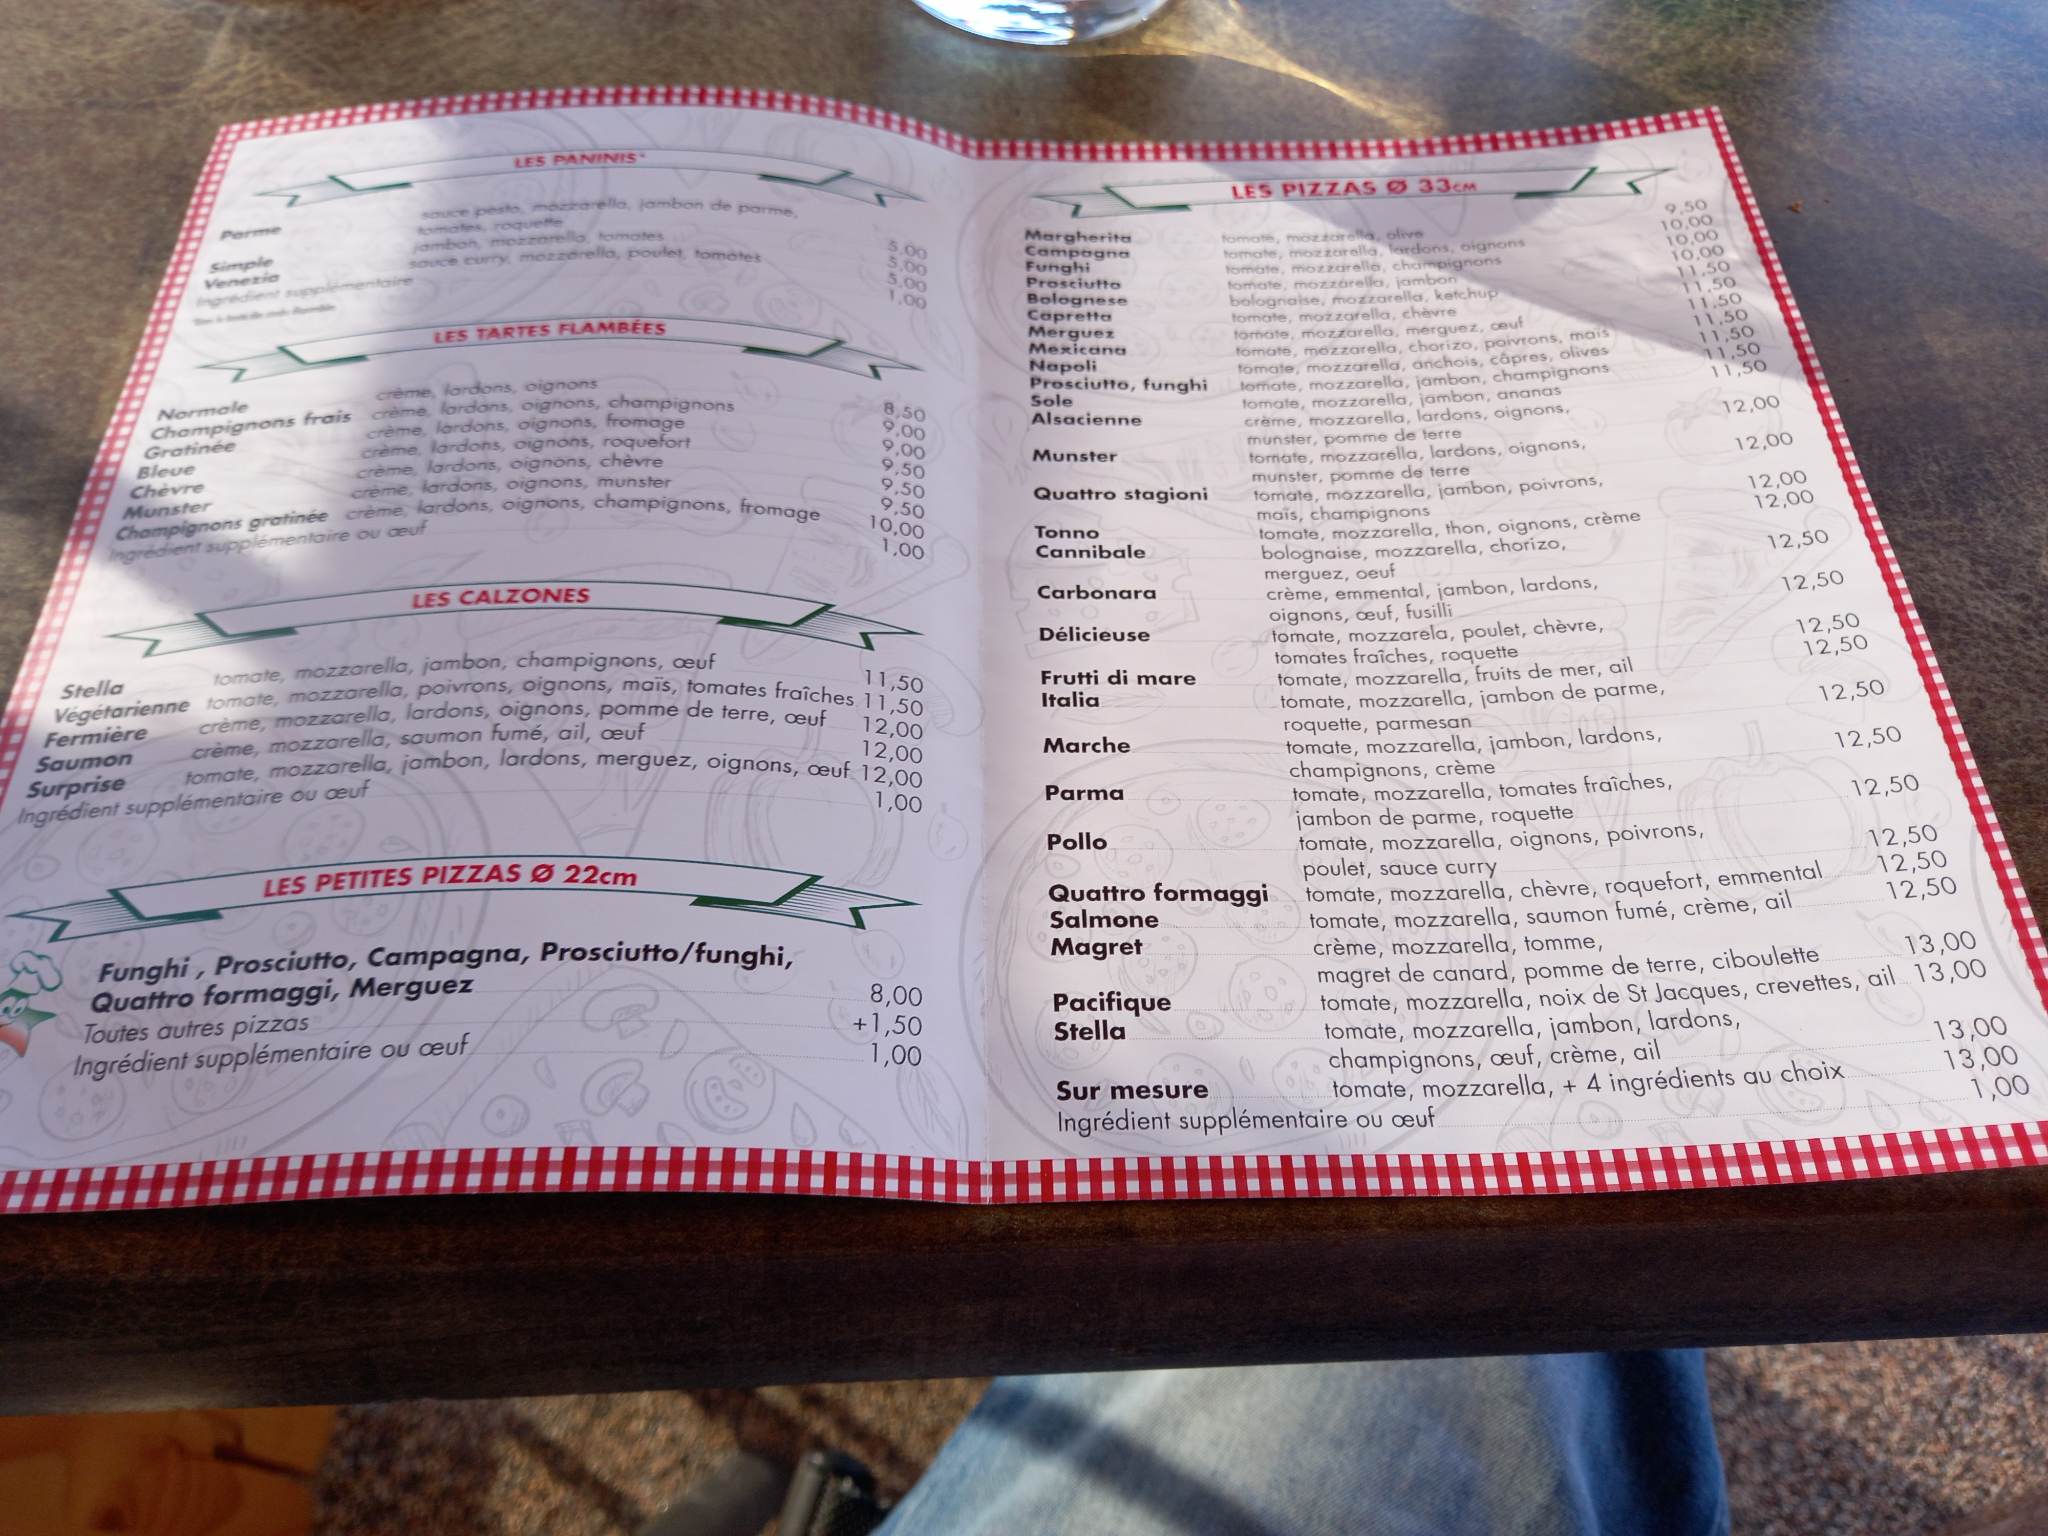 LES PANINIS*
Parme sauce pesto, mozzarella, jambon de parme,
tomates, roquette 5,00
Simple jambon, mozzarella, tomates 5,00
Venezia sauce curry, mozzarella, poulet, tomates 5,00
Ingrédient supplémentaire 1,00
LES TARTES FLAMBÉES
Normale crème, lardons, oignons 8,50
Champignons frais crème, lardons, oignons, champignons 9,00
Gratinée crème, lardons, oignons, fromage 9,00
Bleue crème, lardons, oignons, roquefort 9,50
Chèvre crème, lardons, oignons, chèvre 9,50
Munster crème, lardons, oignons, munster 9,50
Champignons gratinée crème, lardons, oignons, champignons, fromage 10,00
Ingrédient supplémentaire ou œuf 1,00
LES CALZONES
Stella tomate, mozzarella, jambon, champignons, œuf 11,50
Végétarienne tomate, mozzarella, poivrons, oignons, maïs, tomates fraîches 11,50
Fermière crème, mozzarella, lardons, oignons, pomme de terre, œuf 12,00
Saumon crème, mozzarella, saumon fumé, ail, œuf 12,00
Surprise tomate, mozzarella, jambon, lardons, merguez, oignons, œuf 12,00
Ingrédient supplémentaire ou œuf 1,00
LES PETITES PIZZAS Ø 22cm
Funghi , Prosciutto, Campagna, Prosciutto/funghi,
Quattro formaggi, Merguez 8,00
Toutes autres pizzas +1,50
Ingrédient supplémentaire ou œuf 1,00
LES PIZZAS Ø 33CM
Margherita tomate, mozzarella, olive 9,50
Campagna tomate, mozzarella, lardons, oignons 10,00
Funghi tomate, mozzarella, champignons 10,00
Prosciutto tomate, mozzarella, jambon 10,00
Bolognese bolognaise, mozzarella, ketchup 11,50
Capretta tomate, mozzarella, chèvre 11,50
Merguez tomate, mozzarella, merguez, œuf 11,50
Mexicana tomate, mozzarella, chorizo, poivrons, maïs 11,50
Napoli tomate, mozzarella, anchois, câpres, olives 11,50
Prosciutto, funghi tomate, mozzarella, jambon, champignons 11,50
Sole tomate, mozzarella, jambon, ananas 11,50
Alsacienne crème, mozzarella, lardons, oignons,
munster, pomme de terre 12,00
Munster tomate, mozzarella, lardons, oignons,
munster, pomme de terre 12,00
Quattro stagioni tomate, mozzarella, jambon, poivrons,
maïs, champignons 12,00
Tonno tomate, mozzarella, thon, oignons, crème 12,00
Cannibale bolognaise, mozzarella, chorizo,
merguez, oeuf 12,50
Carbonara crème, emmental, jambon, lardons,
oignons, œuf, fusilli 12,50
Délicieuse tomate, mozzarela, poulet, chèvre,
tomates fraîches, roquette 12,50
Frutti di mare tomate, mozzarella, fruits de mer, ail 12,50
Italia tomate, mozzarella, jambon de parme,
roquette, parmesan 12,50
Marche tomate, mozzarella, jambon, lardons,
champignons, crème 12,50
Parma tomate, mozzarella, tomates fraîches,
jambon de parme, roquette 12,50
Pollo tomate, mozzarella, oignons, poivrons,
poulet, sauce curry 12,50
Quattro formaggi tomate, mozzarella, chèvre, roquefort, emmental 12,50
Salmone tomate, mozzarella, saumon fumé, crème, ail 12,50
Magret crème, mozzarella, tomme,
magret de canard, pomme de terre, ciboulette 13,00
Pacifique tomate, mozzarella, noix de St Jacques, crevettes, ail 13,00
Stella tomate, mozzarella, jambon, lardons,
champignons, œuf, crème, ail 13,00
Sur mesure tomate, mozzarella, + 4 ingrédients au choix 13,00
Ingrédient supplémentaire ou œuf 1,00